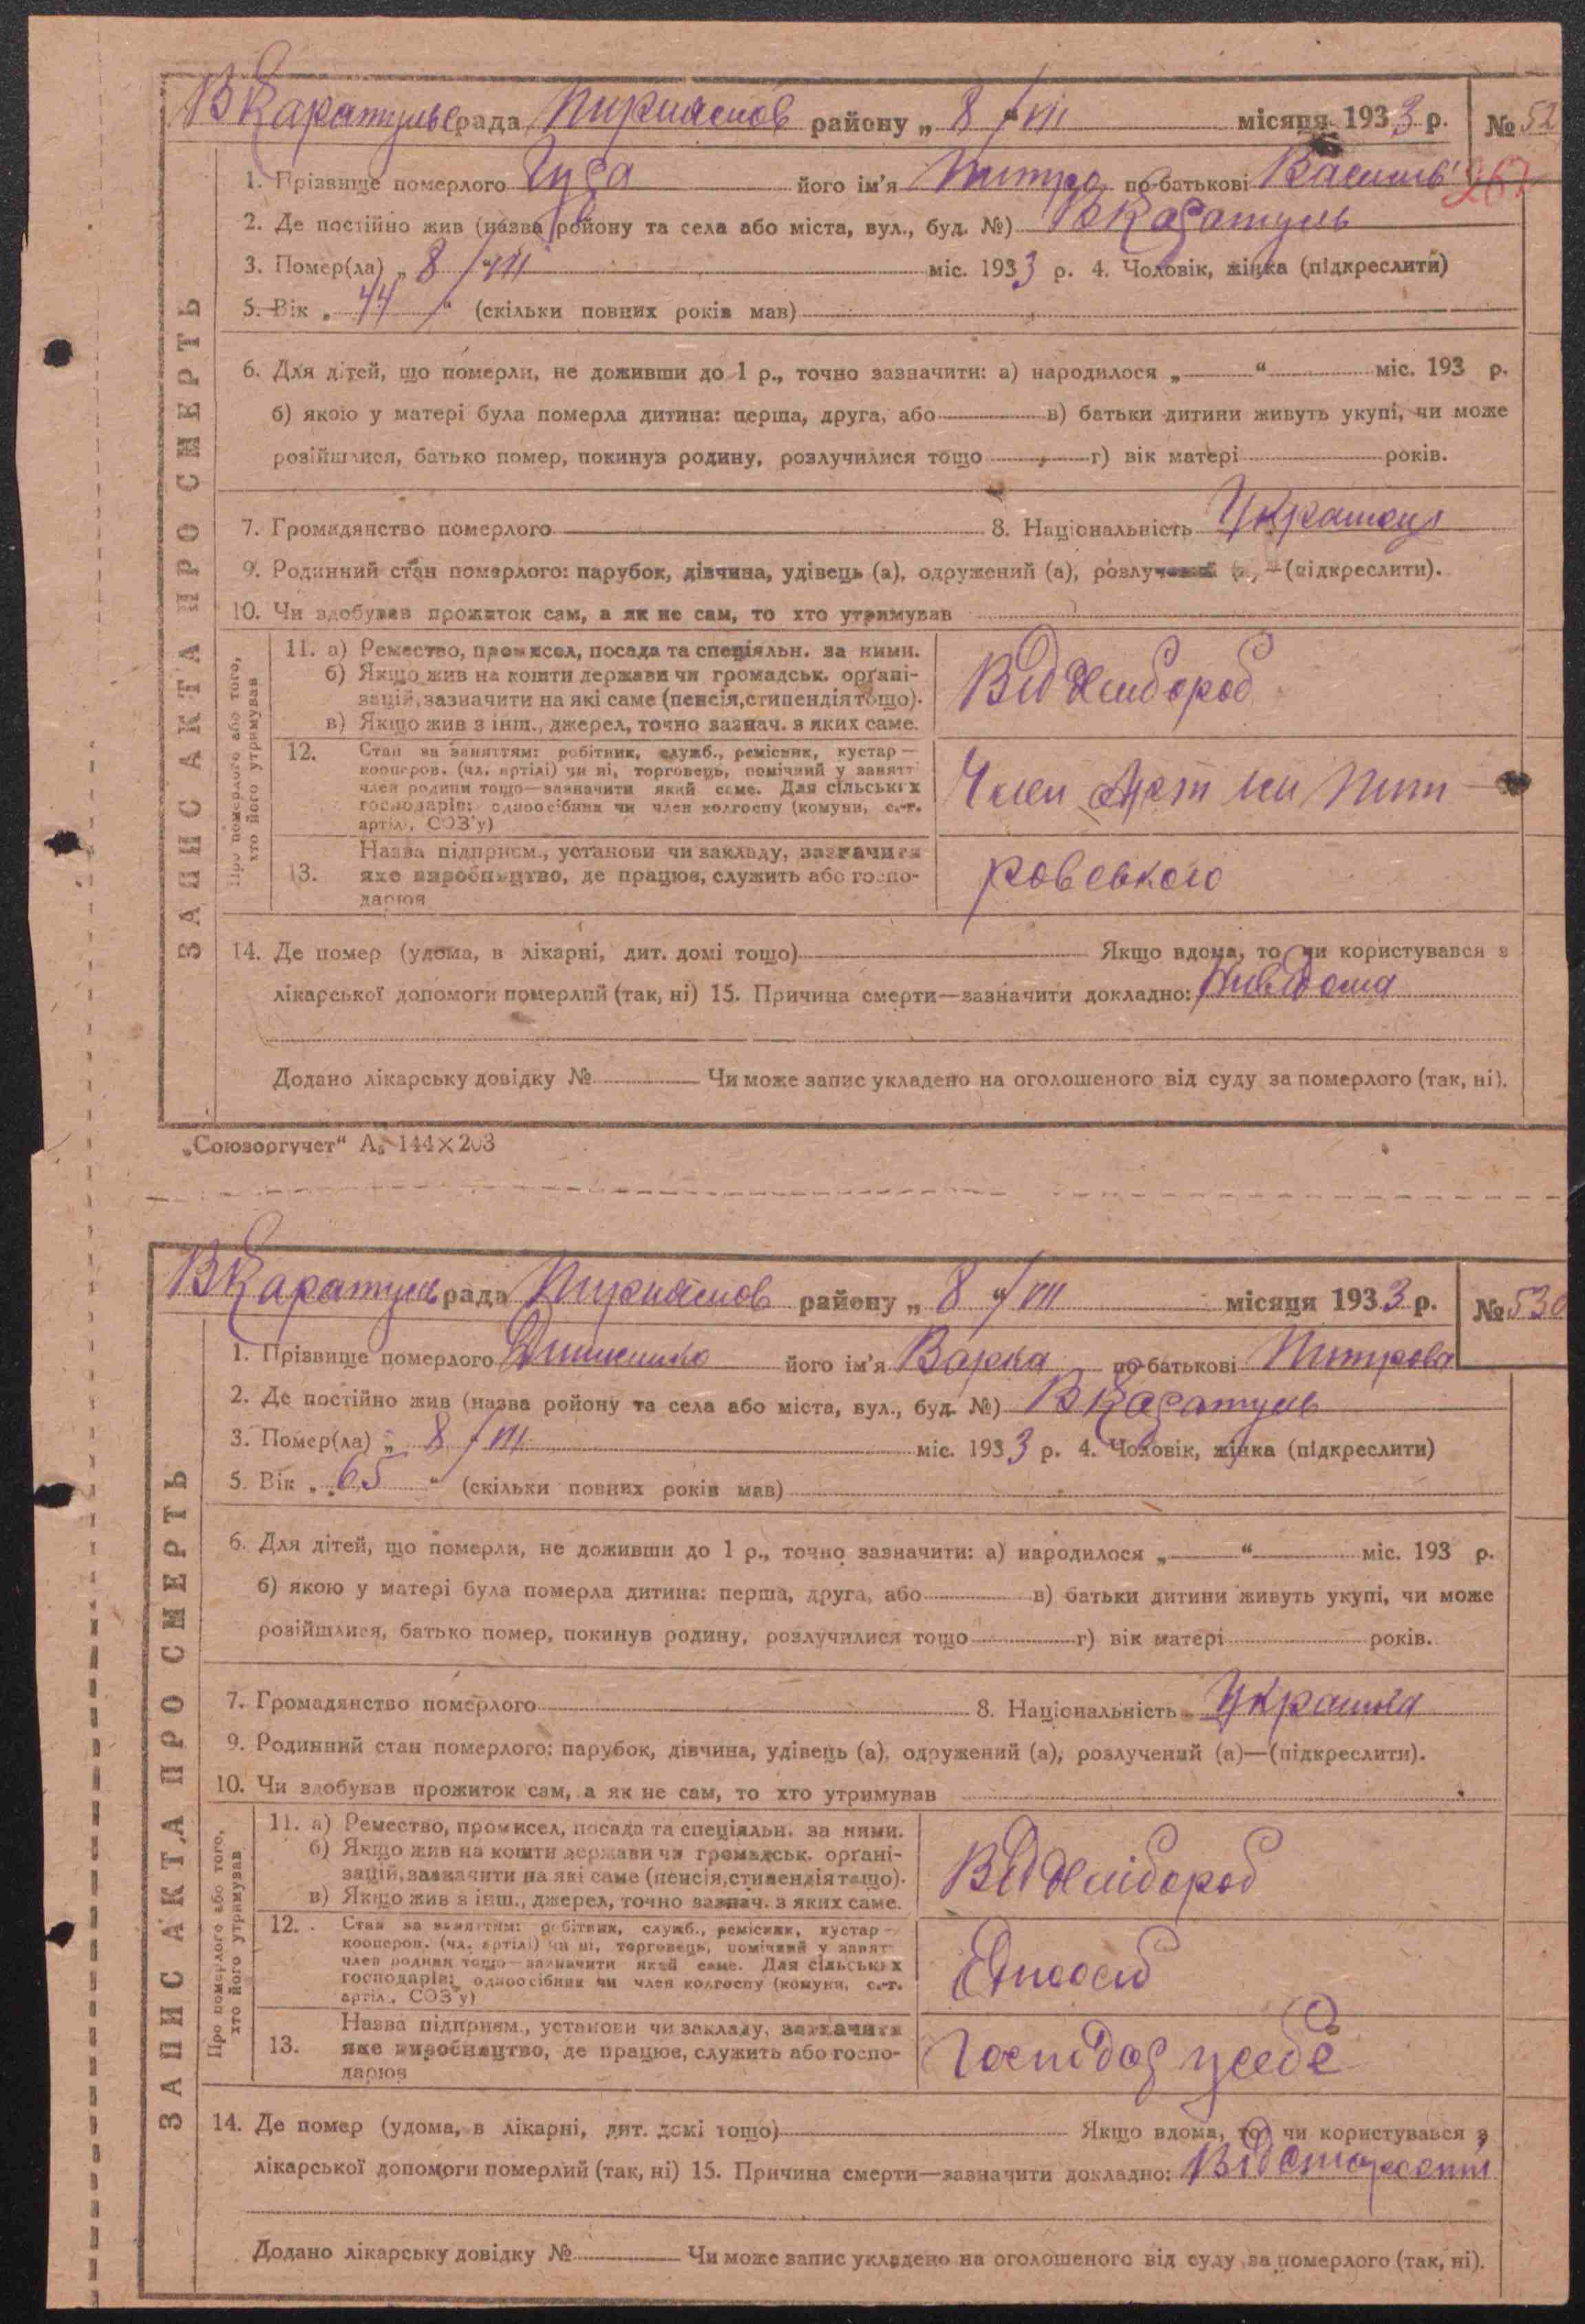 В Каратульс рада Переяслов району „ 8 “ VII місяця 1933 р. № 52
1. Прізвище померлого його ім'я по-батькові Василь 267
2. Де постійно жив (назва ройону та села або міста, вул., буд. №) В Каратуль
3. Помер(ла) „ 8 “ VII міс. 1933 р. 4. Чоловік, жінка (підкреслити)
5. Вік „ 44 “ (скільки повних років мав)
ЗАПИС АКТА ПРО СМЕРТЬ
6. Для дітей, що померли, не доживши до 1 р., точно зазначити: а) народилося „ “ міс. 193 р.
б) якою у матері була померла дитина: перша, друга, або в) батьки дитини живуть укупі, чи може
розійшлися, батько помер, покинув родину, розлучилися тощо г) вік матері років.
7. Громадянство померлого 8. Національність Украінец
9. Родинний стан померлого: парубок, дівчина, удівець (а), одружений (а), розлучений (а)—(підкреслити).
10. Чи здобував прожиток сам, а як не сам, то хто утримував
Про померлого або того, хто його утримував
11. а) Ремество, промисел, посада та спеціяльн. за ними.
б) Якщо жив на кошти держави чи громадськ. органі-
зацій, зазначити на які саме (пенсія, стипендія тощо).
в) Якщо жив з інш., джерел, точно зазнач. з яких саме.
Від Хлібороб
12. Стан за заняттям: робітник, служб., ремісник, кустар —
кооперов. (чл. артілі) чи ні, торговець, помічний у занятт
член родини тощо—зазначити який саме. Для сільських
господарів: одноосібник чи член колгоспу (комуни, с.-г.
артілі, СОЗ'у)
Член Арт
13. Назва підприєм., установи чи закладу, зазначити
яке виробництво, де працює, служить або госпо-
дарює
ровського
14. Де помер (удома, в лікарні, дит. домі тощо) Якщо вдома, то чи користувався з
лікарської допомоги померлий (так, ні) 15. Причина смерти—зазначити докладно: Нивідома
Додано лікарську довідку № Чи може запис укладено на оголошеного від суду за померлого (так, ні).
„Союзоргучет“ А₅ 144×203
В Каратуль рада Переяслов району „ 8 “ VII місяця 1933 р. № 530
1. Прізвище померлого його ім'я Варка по-батькові Питрова
2. Де постійно жив (назва ройону та села або міста, вул., буд. №) В Каратуль
3. Помер(ла) „ 8 “ VII міс. 1933 р. 4. Чоловік, жінка (підкреслити)
5. Вік „ 65 “ (скільки повних років мав)
ЗАПИС АКТА ПРО СМЕРТЬ
6. Для дітей, що померли, не доживши до 1 р., точно зазначити: а) народилося „ “ міс. 193 р.
б) якою у матері була померла дитина: перша, друга, або в) батьки дитини живуть укупі, чи може
розійшлися, батько помер, покинув родину, розлучилися тощо г) вік матері років.
7. Громадянство померлого 8. Національність Украінка
9. Родинний стан померлого: парубок, дівчина, удівець (а), одружений (а), розлучений (а)—(підкреслити).
10. Чи здобував прожиток сам, а як не сам, то хто утримував
Про померлого або того, хто його утримував
11. а) Ремество, промисел, посада та спеціяльн. за ними.
б) Якщо жив на кошти держави чи громадськ. органі-
зацій, зазначити на які саме (пенсія, стипендія тощо).
в) Якщо жив з інш., джерел, точно зазнач. з яких саме.
Від Хлібороб
12. Стан за заняттям: робітник, служб., ремісник, кустар —
кооперов. (чл. артілі) чи ні, торговець, помічний у занят
член родини тощо—зазначити який саме. Для сільських
господарів: одноосібник чи член колгоспу (комуни, с.-г.
артілі, СОЗ'у)
Єдноосіб
13. Назва підприєм., установи чи закладу, зазначити
яке виробництво, де працює, служить або госпо-
дарює
Господар усебе
14. Де помер (удома, в лікарні, дит. домі тощо) Якщо вдома, то чи користувався з
лікарської допомоги померлий (так, ні) 15. Причина смерти—зазначити докладно: Від старости
Додано лікарську довідку № Чи може запис укладено на оголошеного від суду за померлого (так, ні).